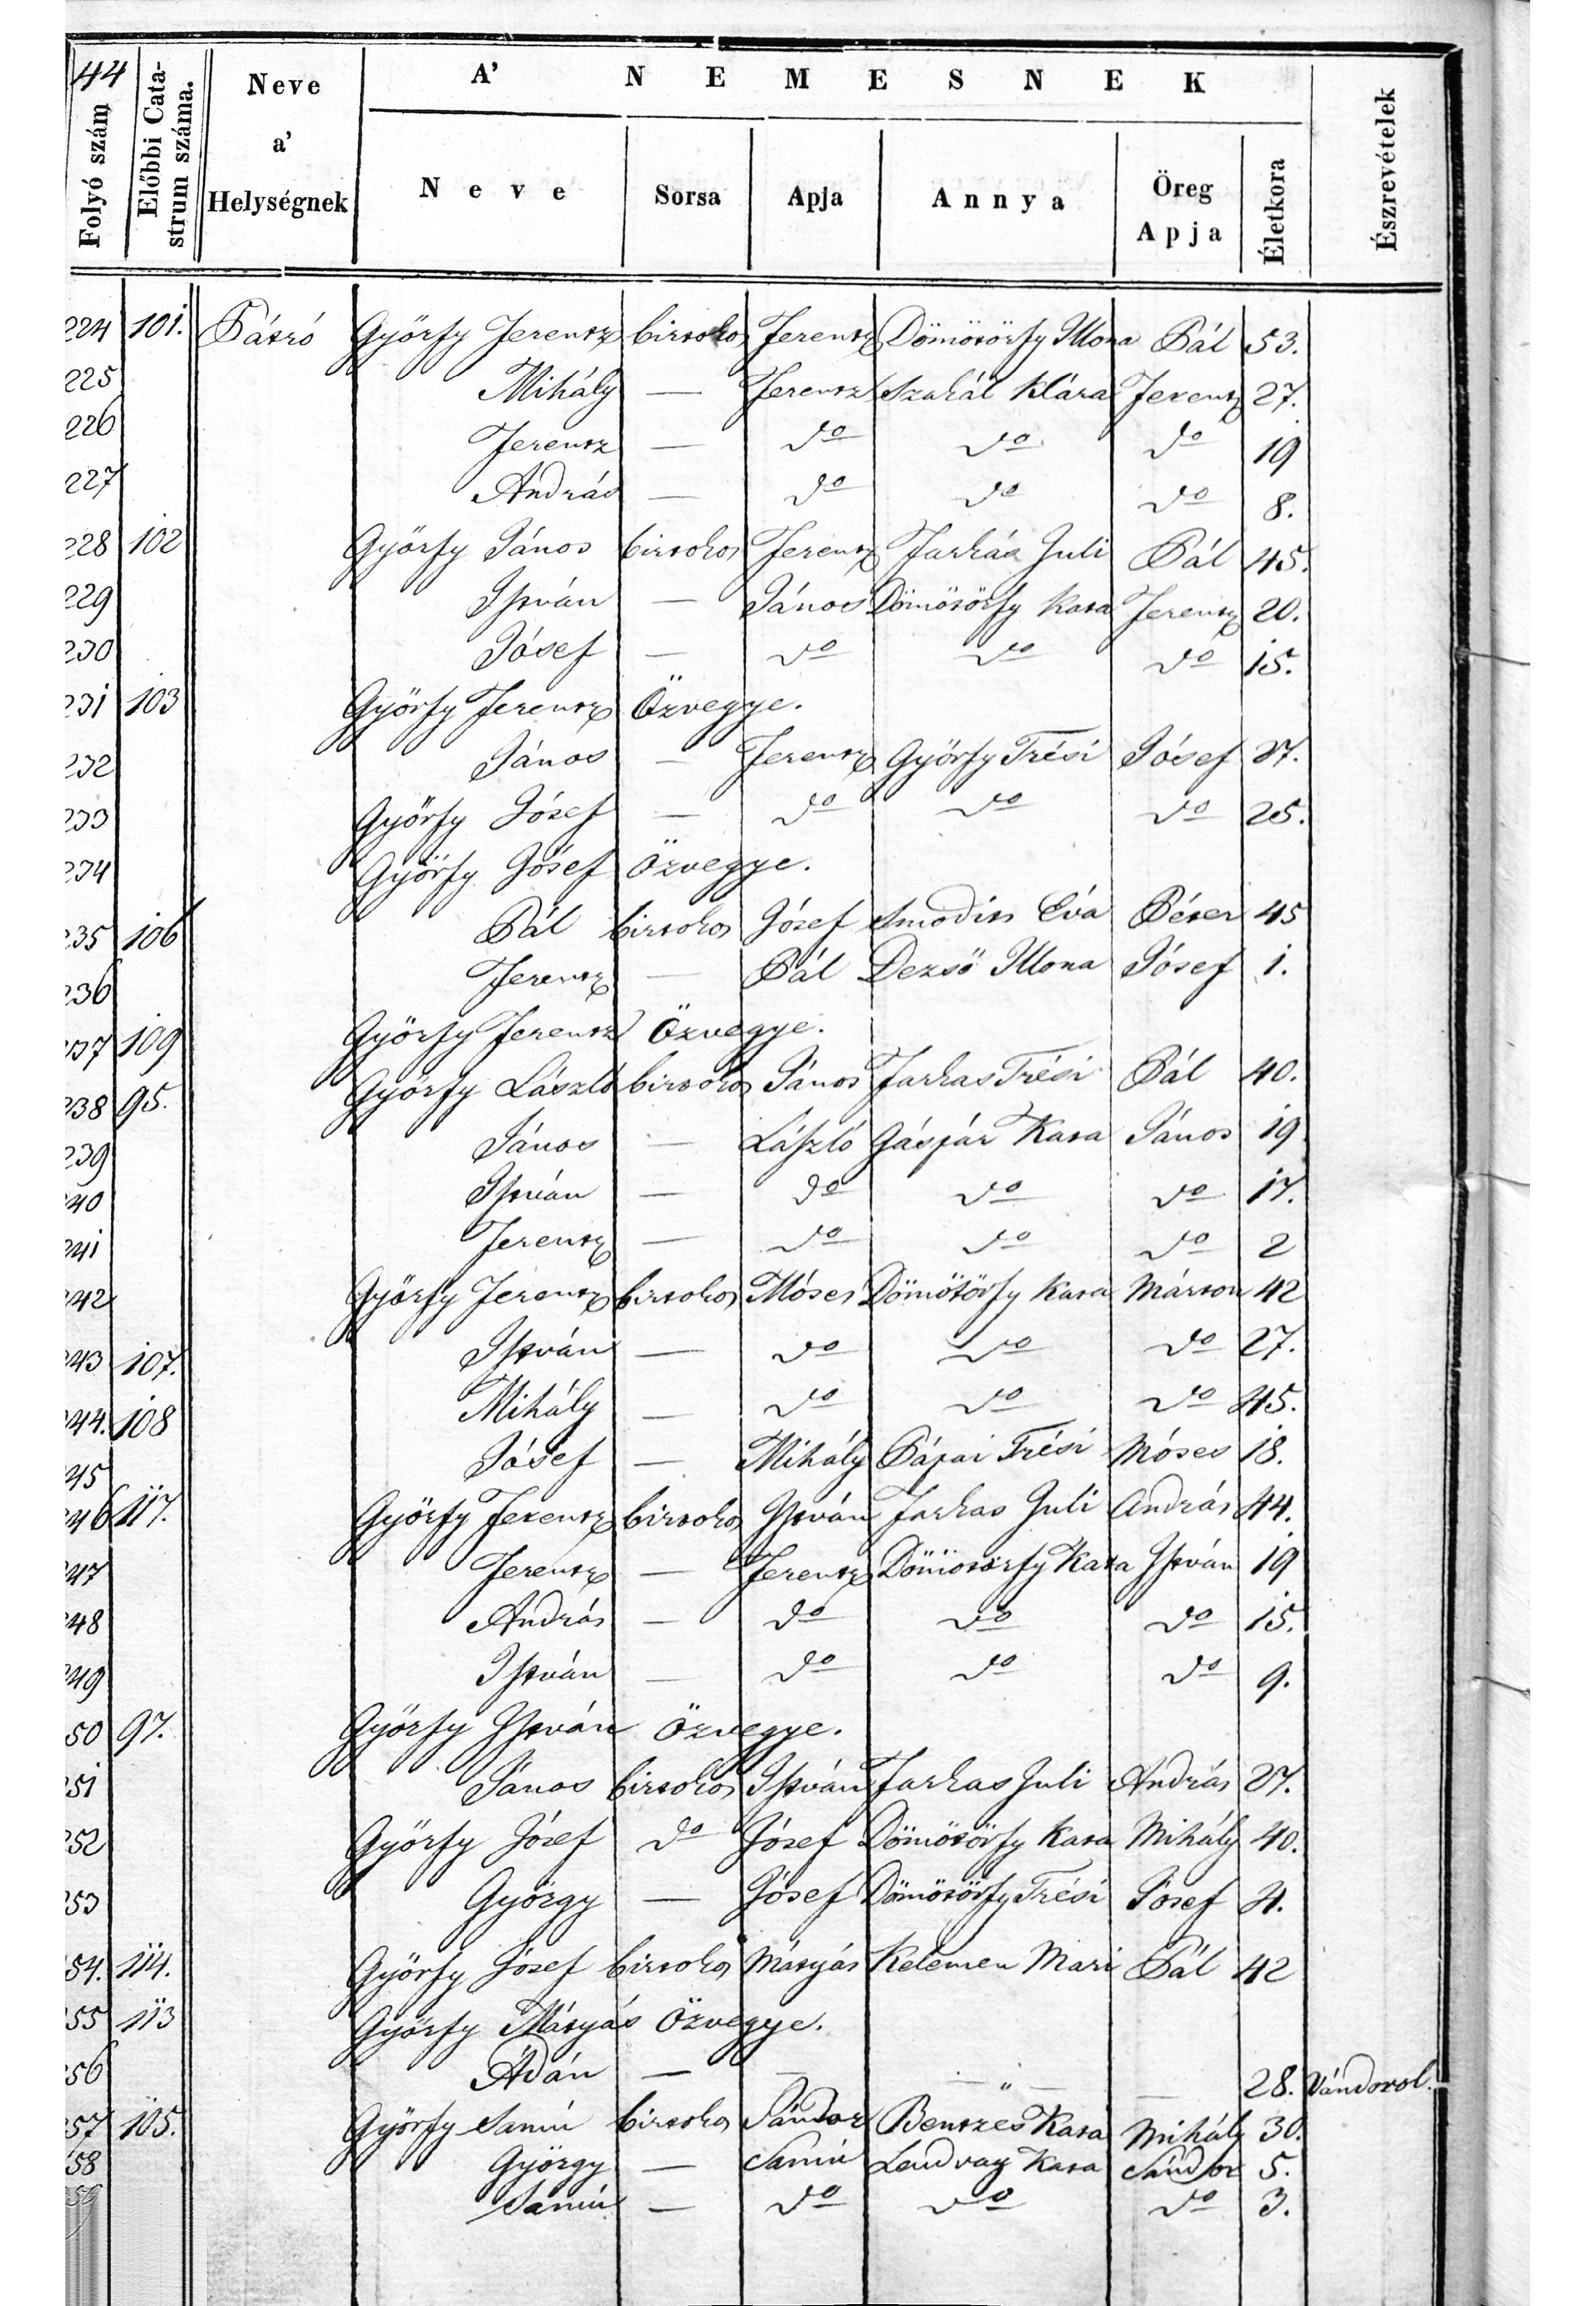 44
Folyó szám
Előbbi Cata-
strum száma.
Neve
a'
Helységnek
A' NEMESNEK
Neve
Sorsa
Apja
Annya
Öreg
Apja
Életkora
Észrevételek
224 101. Pátró Györfy Ferentz birtokos Ferentz Dömötörfy Illona Pál 53.
225 Mihály — Ferentz Szakál Klára Ferentz 27.
226 Ferentz — do do do 19
227 András — do do do 8.
228 102 Györfy János birtokos Ferentz Farkas Juli Pál 45.
229 István — János Dömötörfy Kata Ferentz 20.
230 Jósef — do do do 15.
231 103 Györfy Ferentz Özvegye.
232 János — Ferentz Györfy Trési Jósef 27.
233 Györfy Jósef — do do do 25.
234 Györfy Jósef Özvegye.
235 106 Pál birtokos Jósef Smodits Éva Péter 45
236 Ferentz — Pál Dezső Illona Jósef 1.
237 109 Györfy Ferentz Özvegye.
238 95. Györfy László birtokos János Farkas Trési Pál 40.
239 János — László Gáspár Kata János 19
240 István — do do do 17.
241 Ferentz — do do do 2
242 Györfy Ferentz birtokos Móses Dömötörfy Kata Márton 42
243 107. István — do do do 27.
244. 108 Mihály — do do do 45.
245 Jósef — Mihály Pápai Trési Móses 18.
246 117. Györfy Ferentz birtokos István Farkas Juli András 44.
247 Ferentz — Ferentz Dömötörfy Kata István 19
248 András — do do do 15.
249 István — do do do 9.
250 97. Györfy István Özvegye.
251 János birtokos István Farkas Juli András 27.
252 Györfy Jósef do Jósef Dömötörfy Kata Mihály 40.
253 György — Jósef Dömötörfy Trési Jósef 4.
54. 114. Györfy Jósef birtokos Mátyás Kelemen Mari Pál 42
55 113 Györfy Mátyás Özvegye.
56 Ádán — — — " — — 28. Vándorol.
57 105. Györfy Samu birtokos Sándor Bentzes Kata Mihály 30.
58 György — Samu Lendvay Kata Sándor 5.
Samu — do do do 3.